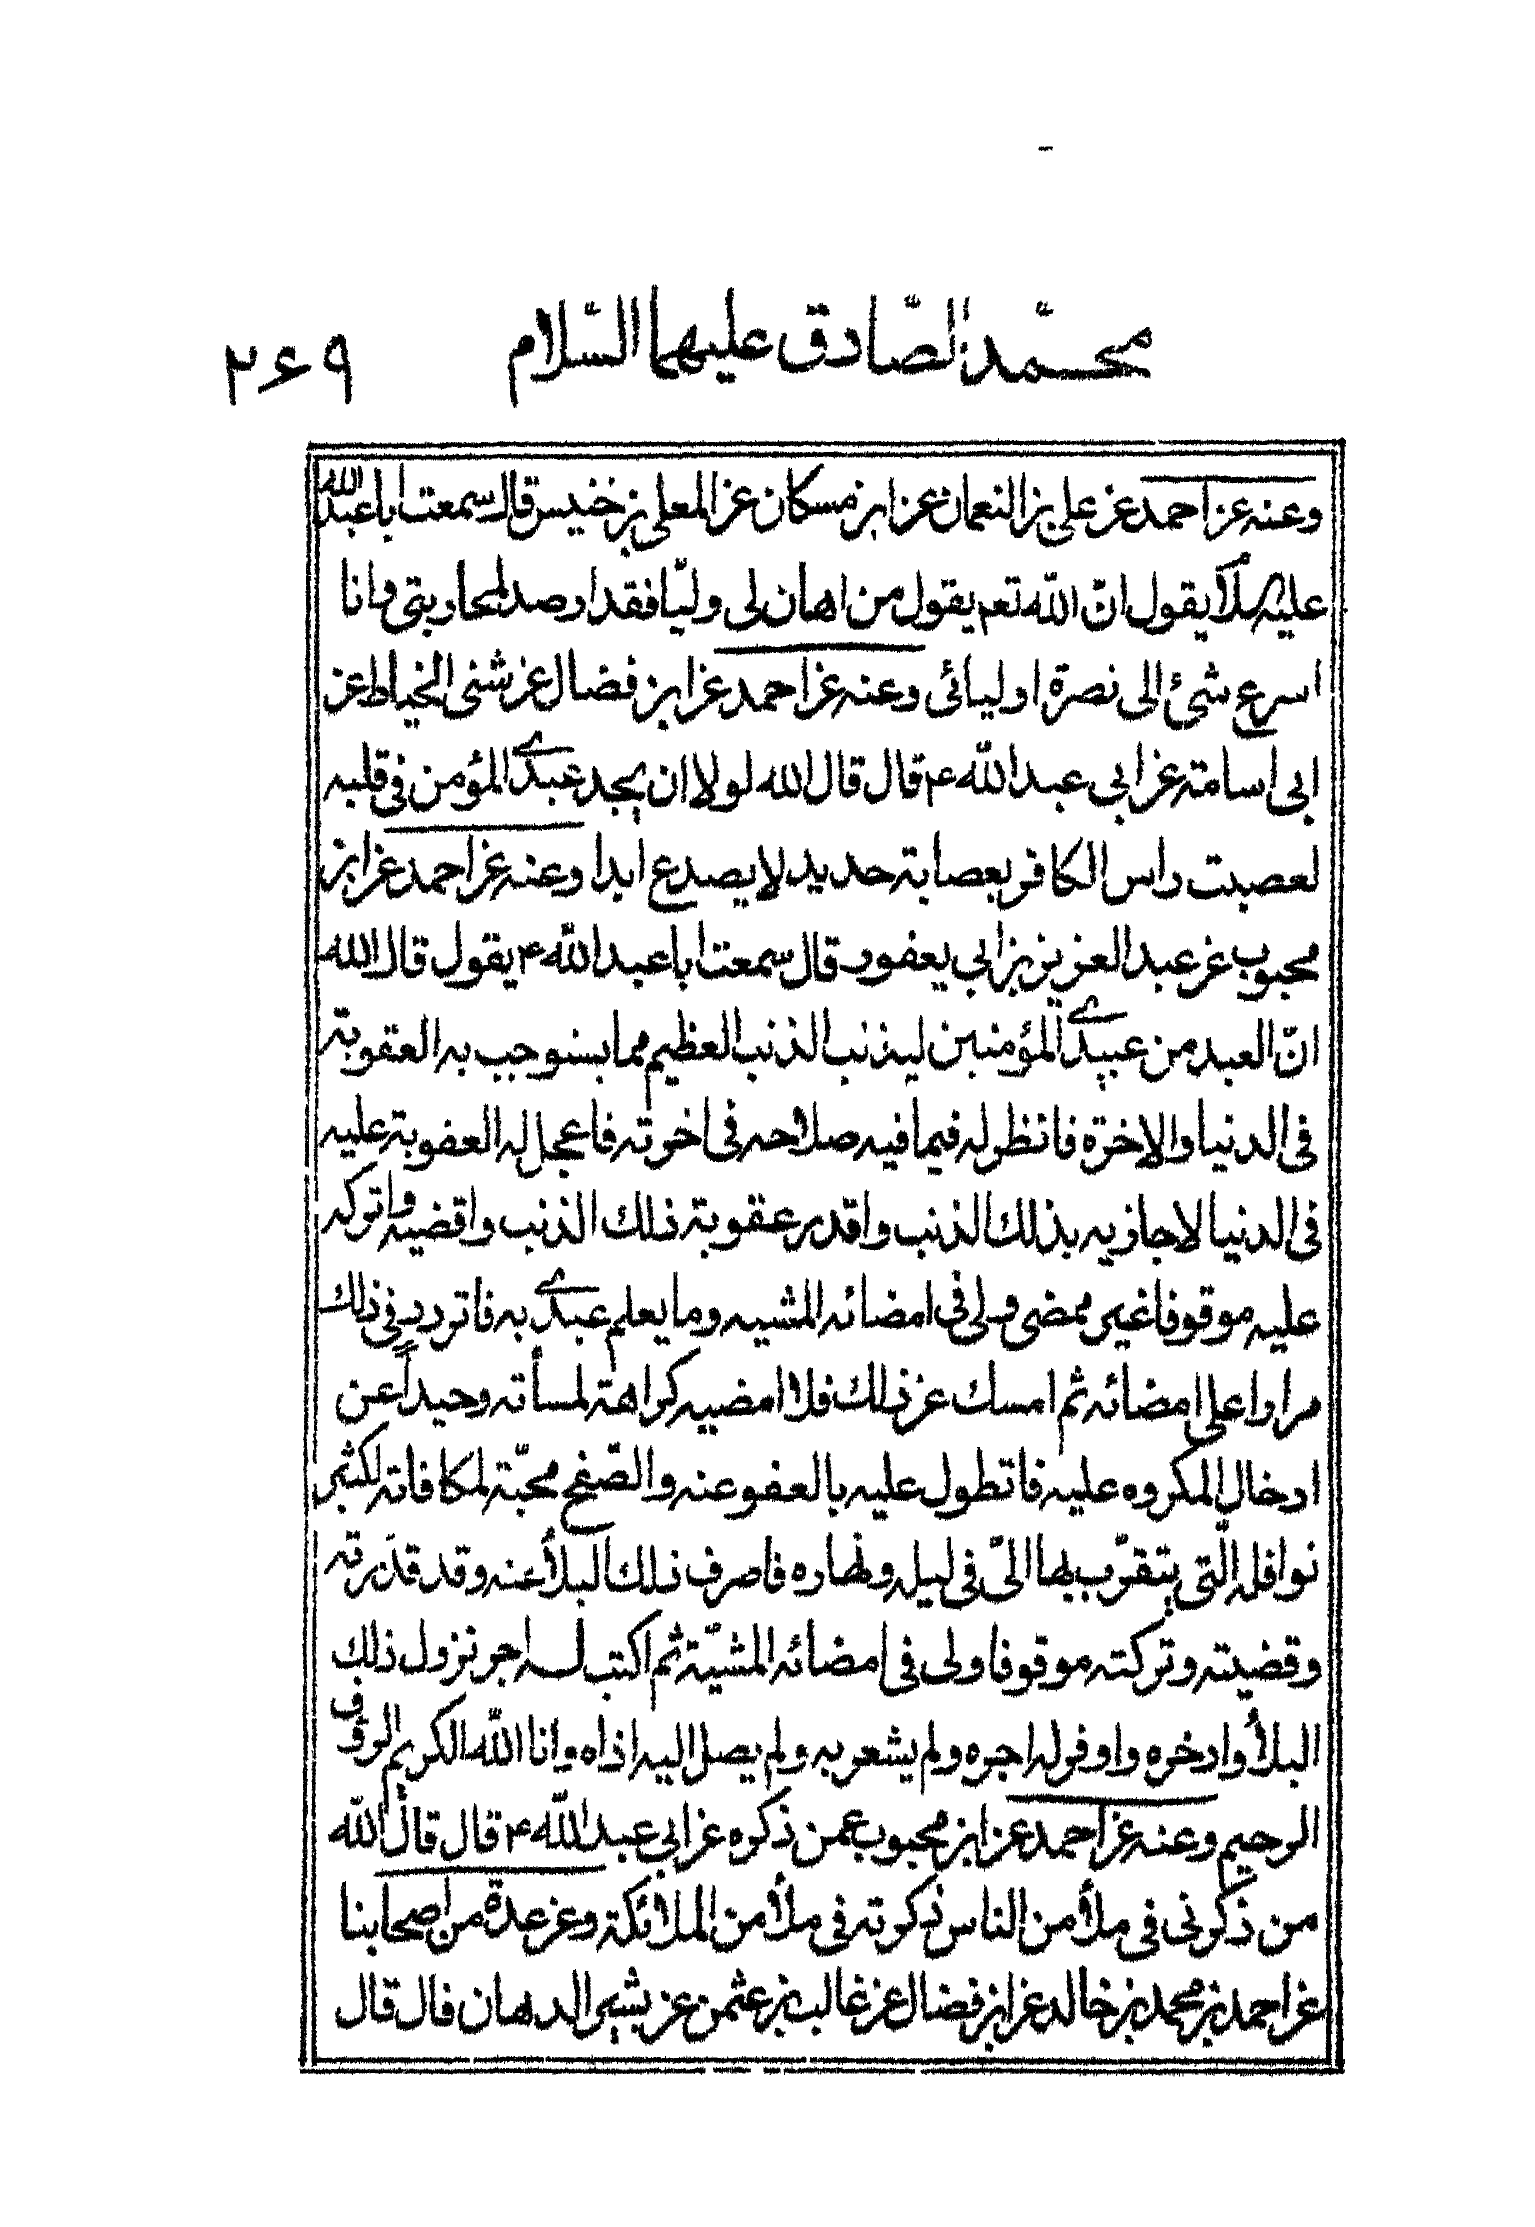 محمّد الصّادق عليهما السّلام ٢۶٩
وعنه عن احمد عن علي بن النعمان عن ابن مسكان عن المعلى بن خنيس قال سمعت ابا عبد الله
عليه السلام يقول انّ الله تعم يقول من اهان لى وليّا فقد ارصد لمحاربتى وانا
اسرع شئ الى نصرة اوليائى وعنه عن احمد عن ابن فضال عن مثنى الخياط عن
ابى اسامة عن ابي عبد الله ۴ قال قال الله لولا ان يجد عبدى المؤمن فى قلبه
لعصبت راس الكافر بعصابة حديد لا يصدع ابدا وعنه عن احمد عن ابن
محبوب عن عبد العزيز بن ابي يعفور قال سمعت ابا عبد الله ۴ يقول قال الله
انّ العبد من عبيدى المؤمنين ليذنب الذنب العظيم مما يستوجب به العقوبة
فى الدنيا والاخرة فانظر له فيما فيه صلاحه فى اخرته فاعجل له العقوبة عليه
فى الدنيا لاجازيه بذلك الذنب واقدر عقوبة ذلك الذنب واقضيه واتركه
عليه موقوفا غير ممضى ولى فى امضائه المشيه وما يعلم عبدى به فاتردد فى ذلك
مرارا على امضائه ثم امسك عن ذلك فلا امضيه كراهة لمسأته وحيداً عن
ادخال المكروه عليه فاتطول عليه بالعفو عنه والصّفح محبّة لمكافاته لكثير
نوافله الّتى يتقرّب بها الىّ فى ليله ونهاره فاصرف ذلك البلأ عنه وقد قدّرته
وقضيته وتركته موقوفا ولى فى امضائه المشيّة ثم اكتب له اجر نزول ذلك
البلأ وادخره واوفر له اجره ولم يشعر به ولم يصل اليه اذاه وانا الله الكريم الروف
الرحيم وعنه عن احمد عن ابن محبوب عمن ذكره عن ابي عبد الله ۴ قال قال الله
من ذكرنى فى ملأ من الناس ذكرته فى ملأ من الملائكة وعن عدة من اصحابنا
عن احمد بن محمد بن خالد عن ابن فضال عن غالب بن عثمن عن بشير الدهان قال قال